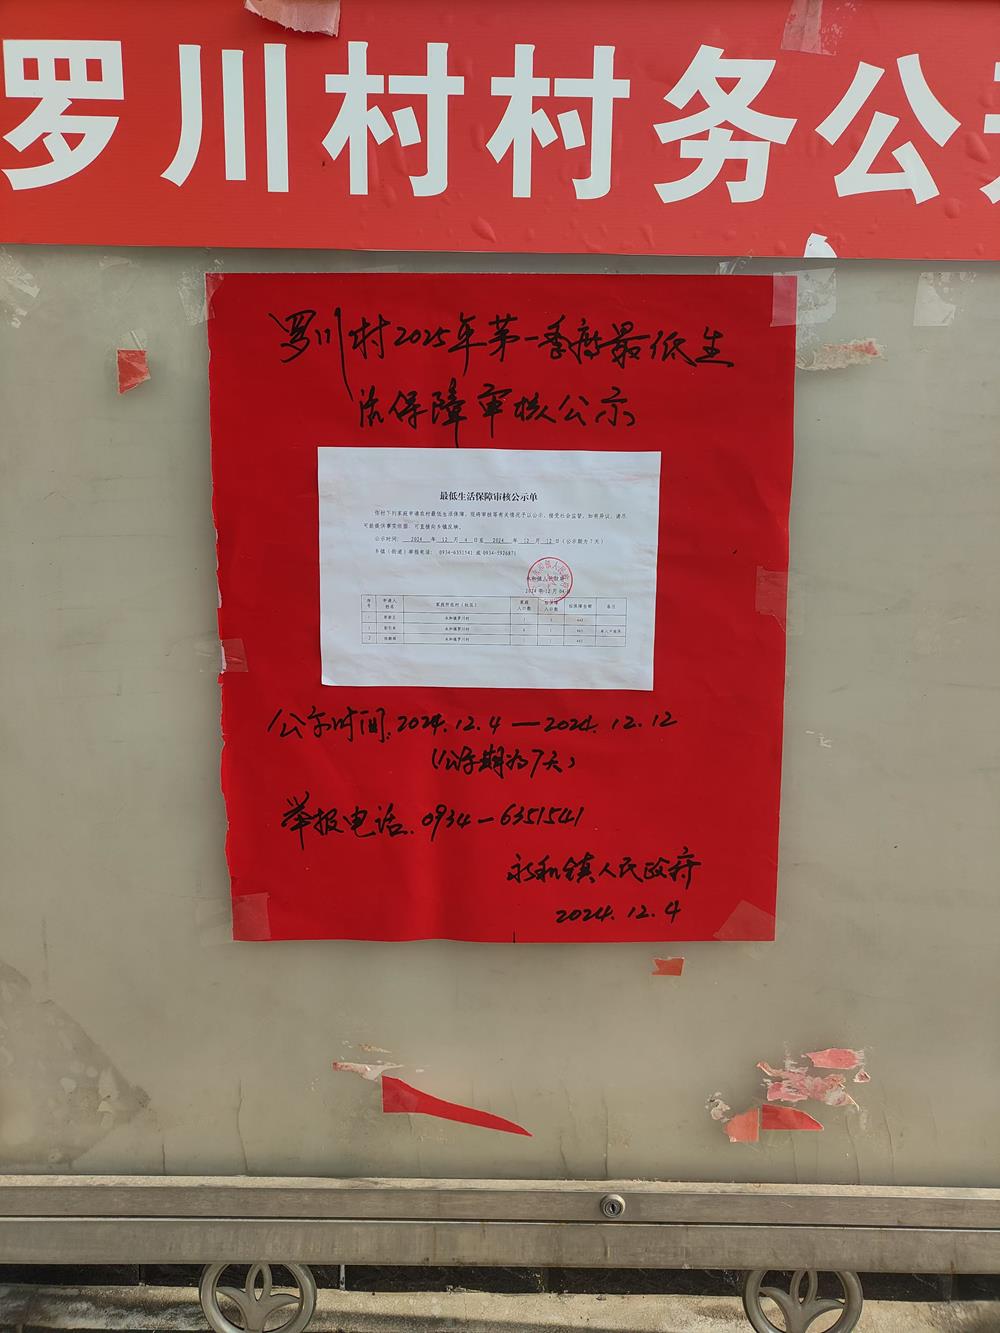 罗川村村务公
罗川村2025年第一季度最低生
活保障审核公示
最低生活保障审核公示单
你村下列家庭申请农村最低生活保障，现将审核等有关情况予以公示，接受社会监督。如有异议，请尽
可能提供事实依据，可直接向乡镇反映。
公示时间： 2024 年 12 月 4 日至 2024 年 12 月 12 日（公示期为7天）
乡镇（街道）举报电话： 0934-6351541 或 0934-5926871
永和镇人民政府
2024年12月04日
序号 申请人姓名 家庭所在村（社区） 家庭人口数 拟保障人口数 拟保障金额 备注
永和镇罗川村
永和镇罗川村
2 永和镇罗川村
公示时间:2024.12.4—2024.12.12
(公示期为7天)
举报电话:0934-6351541
永和镇人民政府
2024.12.4